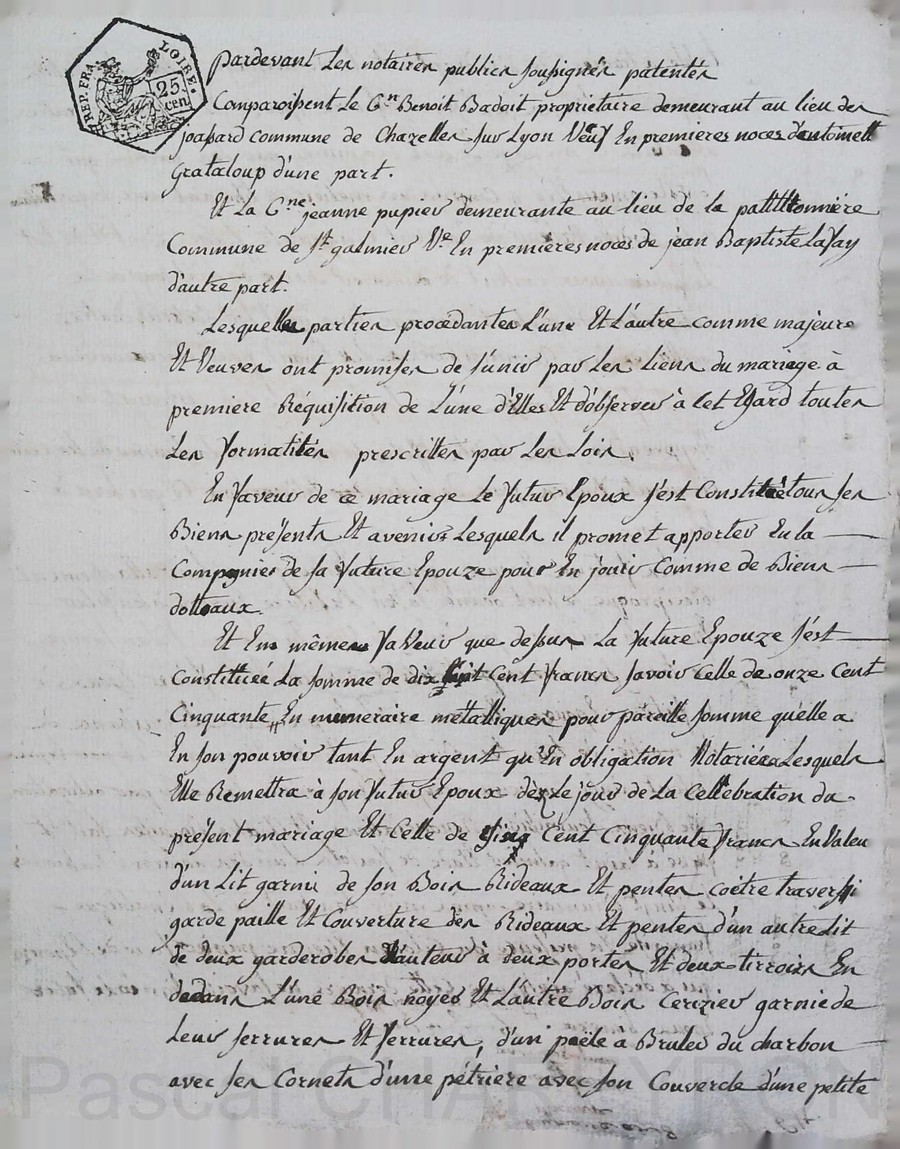 REP. FRA. LOIRE.
25 cen
Pardevant Les notaires publics soussignés patentés
Comparoissent Le C.en Benoit Badoit proprietaire demeurant au lieu des
joassard commune de Chazelles sur Lyon Veuf En premieres noces d'antoinett
Grataloup d'une part.
Et La C.ne jeanne pupier demeurante au lieu de la
Commune de St galmier Ve. En premieres noces de jean Baptiste Lafay
d'autre part.
Lesquelles parties procedantes L'une Et L'autre comme majeure
Et Veuves ont promises de s'unir par Les Liens du mariage à
premiere Réquisition de L'une d'Elles Et d'observer à Cet Egard toutes
Les formalités prescrittes par Les Lois.
En faveur de ce mariage Le futur Epoux s'est Constitué tous ses
Biens présents Et avenirs Lesquels il promet apporter En la
Compagnies de sa future Epouze pour En jouir Comme de Biens
dotteaux.
Et En mêmes faveur que dessus La future Epouze s'est
Constituée La somme de dix sept Cent francs savoir Celle de onze Cent
Cinquante En numeraire métalliques pour pareille somme qu'elle a
En son pouvoir tant En argent qu'En obligation Notariées Lesquels
Elle Remettra à son futur Epoux dès Le jour de La Cellebration du
présent mariage Et Celle de Cinq Cent Cinquante francs En Valeu
d'un Lit garni de son Bois Rideaux Et pentes coëtre traversi
garde paille Et Couverture des Rideaux Et pentes d'un autre Lit
de deux garderobes à deux portes Et deux tirroirs En
dedans L'une Bois noyer Et L'autre Bois Cerizier garnie de
Leur serrures Et ferrures, d'un poële à Bruler du charbon
avec ses Cornets d'une pétriere avec son Couvercle d'une petite
Pascal CHAREYRON